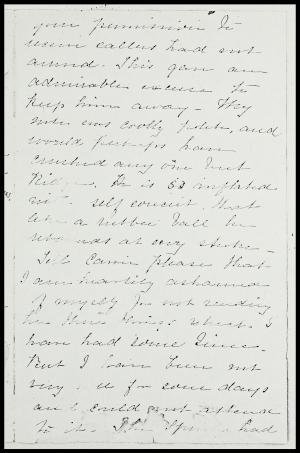 your permission to
receive callers had not
arrived. This gave an
admirable excuse to
keep him away - My
note was coolly polite, and
would perhaps have
crushed any one but
Ridge. He is so inflated
with self conceit, that
like a rubber ball he
rebounds at every stroke -
Tell Carrie please that
I am heartily ashamed
of myself for not sending
her those things which I
have had some time.
But I have been not
very well for some days
and could not attend
to it. The had